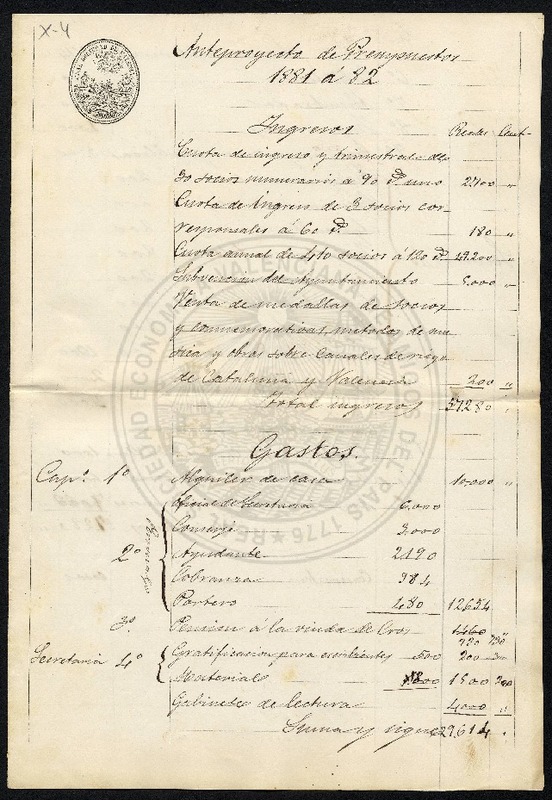 X-4
Anteproyecto de Presupuestos
1881 á 82
Ingresos Reales Cent.
Cuota de ingreso y trimestral de
30 socios numerarios á 90 r.s uno 2700 "
Cuota de Ingreso de 3 socios cor-
responsales á 60 r.s 180 "
Cuota annal de 410 socios á 120 r.s 49.200 "
Subvencion del Ayuntamiento 5.000 "
Venta de medallas de socios
y conmemorativas, metodos de mu-
sica y obras sobre Canales de riego
de Cataluna y Valencia 200 "
Total ingresos 57280 "
Gastos.
Cap.º 1º Alquiler de casa 10.000 "
Oficial de Secretaria 6.000
Conserje 3.000
2º Ayudante 2190
Cobranza 984
Portero 480 12654
3º Pension a la viuda de Cros 1460
730
Secretaria 4º Gratificacion para escribientes 500 200
Material 1500
Gabinete de lectura 4000 "
Suma y sigue 29.614 "
REAL SOCIEDAD ECONOMICA VALENCIANA DE AMIGOS DEL PAIS 1776